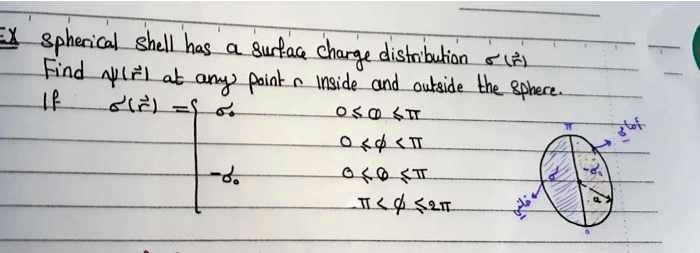 EX Spherical Shell has a surface charge distribution σ(r⃗)
Find ψ(r⃗) at any point r inside and outside the sphere.
If σ(r⃗) = { σ₀ 0 ≤ θ ≤ π
0 ≤ ϕ < π
-σ₀ 0 ≤ θ ≤ π
π < ϕ ≤ 2π
π
أمامي
σ -σ₀
a
خلفي
0